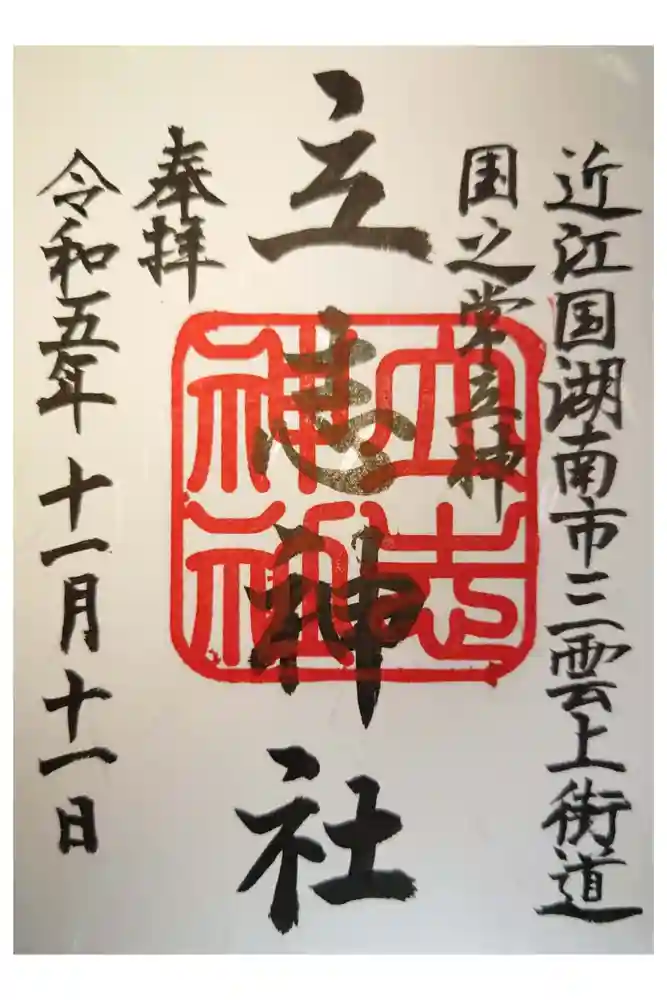 近江国湖南市三雲上街道
国之常立神
立志神社
奉拝
令和五年十一月十一日
立志
神社